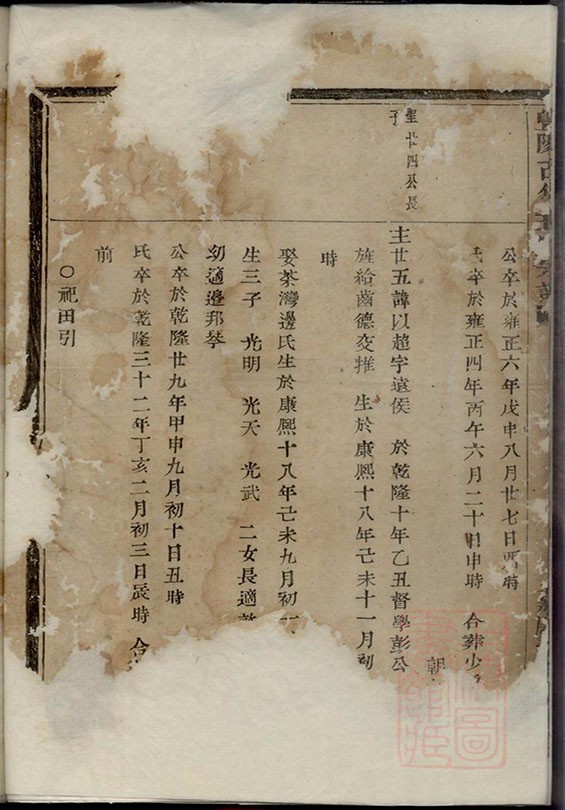 公卒於雍正六年戊申八月廿七日酉時
氏卒於雍正四年丙午六月二十日申時 合葬少
朝
聖廿四公長
子
主廿五諱以超字遠侯 於乾隆十年乙丑督學彭公
旌給齒德交推 生於康熙十八年己未十一月初
時
娶茶灣邊氏生於康熙十八年己未九月初
生三子 光明 光天 光武 二女長適
幼適邊邦琴
公卒於乾隆廿九年甲申九月初十日丑時
氏卒於乾隆三十二年丁亥二月初三日辰時 合
前
○祀田引